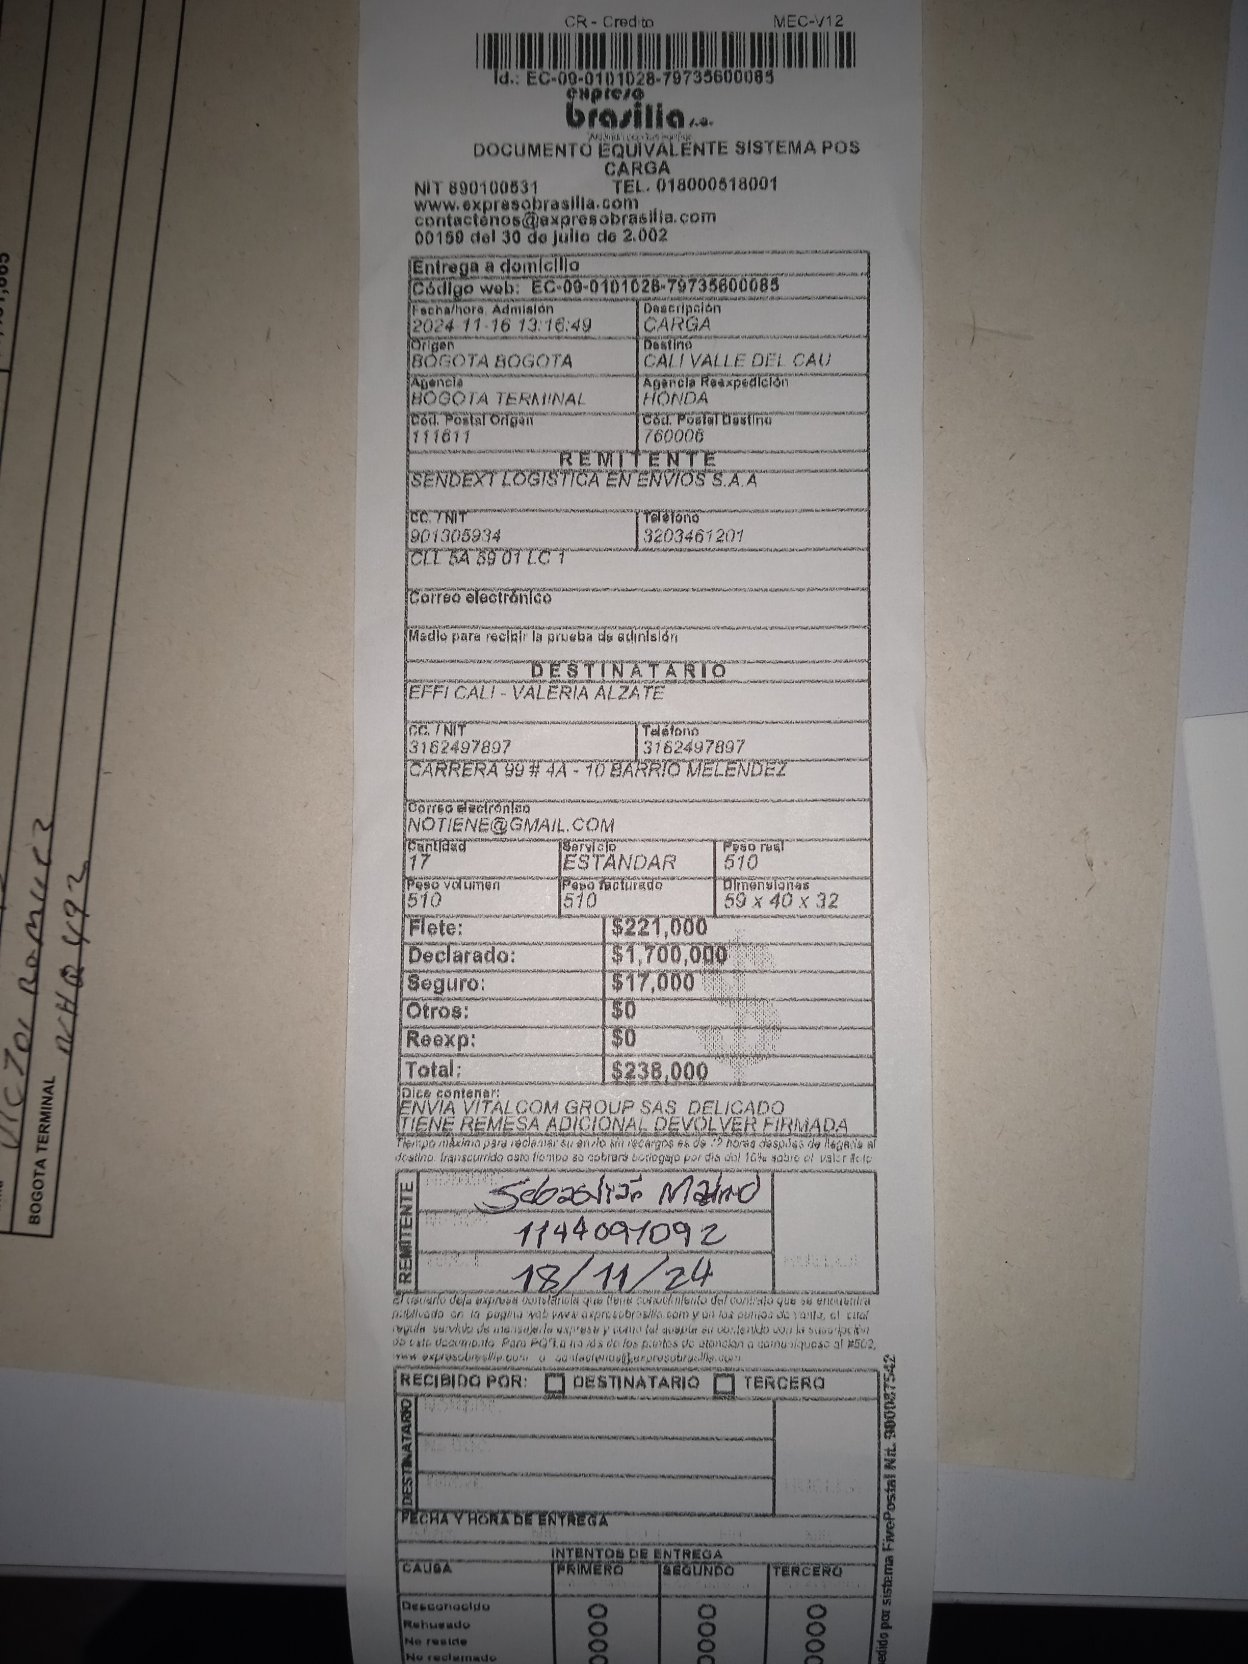 CR - Credito MEC-V12
Id.: EC-09-0101028-79735600085
expreso
brasilia s.a.
DOCUMENTO EQUIVALENTE SISTEMA POS
CARGA
NIT 890100531 TEL. 018000518001
www.expresobrasilia.com
contactenos@expresobrasilia.com
00159 del 30 de julio de 2.002
Entrega a domicilio
Código web: EC-09-0101028-79735600085
Fecha/hora. Admisión Descripción
2024-11-16 13:16:49 CARGA
Origen Destino
BOGOTA BOGOTA CALI VALLE DEL CAU
Agencia Agencia Reexpedición
BOGOTA TERMINAL HONDA
Cód. Postal Origen Cód. Postal Destino
111611 760006
REMITENTE
SENDEXT LOGISTICA EN ENVIOS S.A.A
CC. / NIT Teléfono
901305934 3203461201
CLL 5A 69 01 LC 1
Correo electrónico
Medio para recibir la prueba de admisión
DESTINATARIO
EFFI CALI - VALERIA ALZATE
CC. / NIT Teléfono
3162497897 3162497897
CARRERA 99 # 4A - 10 BARRIO MELENDEZ
Correo electrónico
NOTIENE@GMAIL.COM
Cantidad Servicio Peso real
17 ESTANDAR 510
Peso volumen Peso facturado Dimensiones
510 510 59 x 40 x 32
Flete: $221,000
Declarado: $1,700,000
Seguro: $17,000
Otros: $0
Reexp: $0
Total: $238,000
Dice contener:
ENVIA VITALCOM GROUP SAS DELICADO
TIENE REMESA ADICIONAL DEVOLVER FIRMADA
Tiempo máximo para reclamar su envío sin recargos es de 72 horas después de llegada al
destino. transcurrido este tiempo se cobrará bodegaje por día del 10% sobre el valor flete
REMITENTE
Sebastián Madrid
1144091092
18/11/24
El usuario deja expresa constancia que tiene conocimiento del contrato que se encuentra
publicado en la pagina web www.expresobrasilia.com y en los puntos de venta, el cual
regula servicio de mensajería expresa y como tal acepta su contenido con la suscripción
de este documento. Para PQR's
www.expresobrasilia.com o contactenos@expresobrasilia.com
RECIBIDO POR: DESTINATARIO TERCERO
DESTINATARIO
FECHA Y HORA DE ENTREGA
INTENTOS DE ENTREGA
CAUSA PRIMERO SEGUNDO TERCERO
Desconocido
Rehusado
No reside
No reclamado
edido por sistema FivePostal Nit. 900087542
BOGOTA TERMINAL